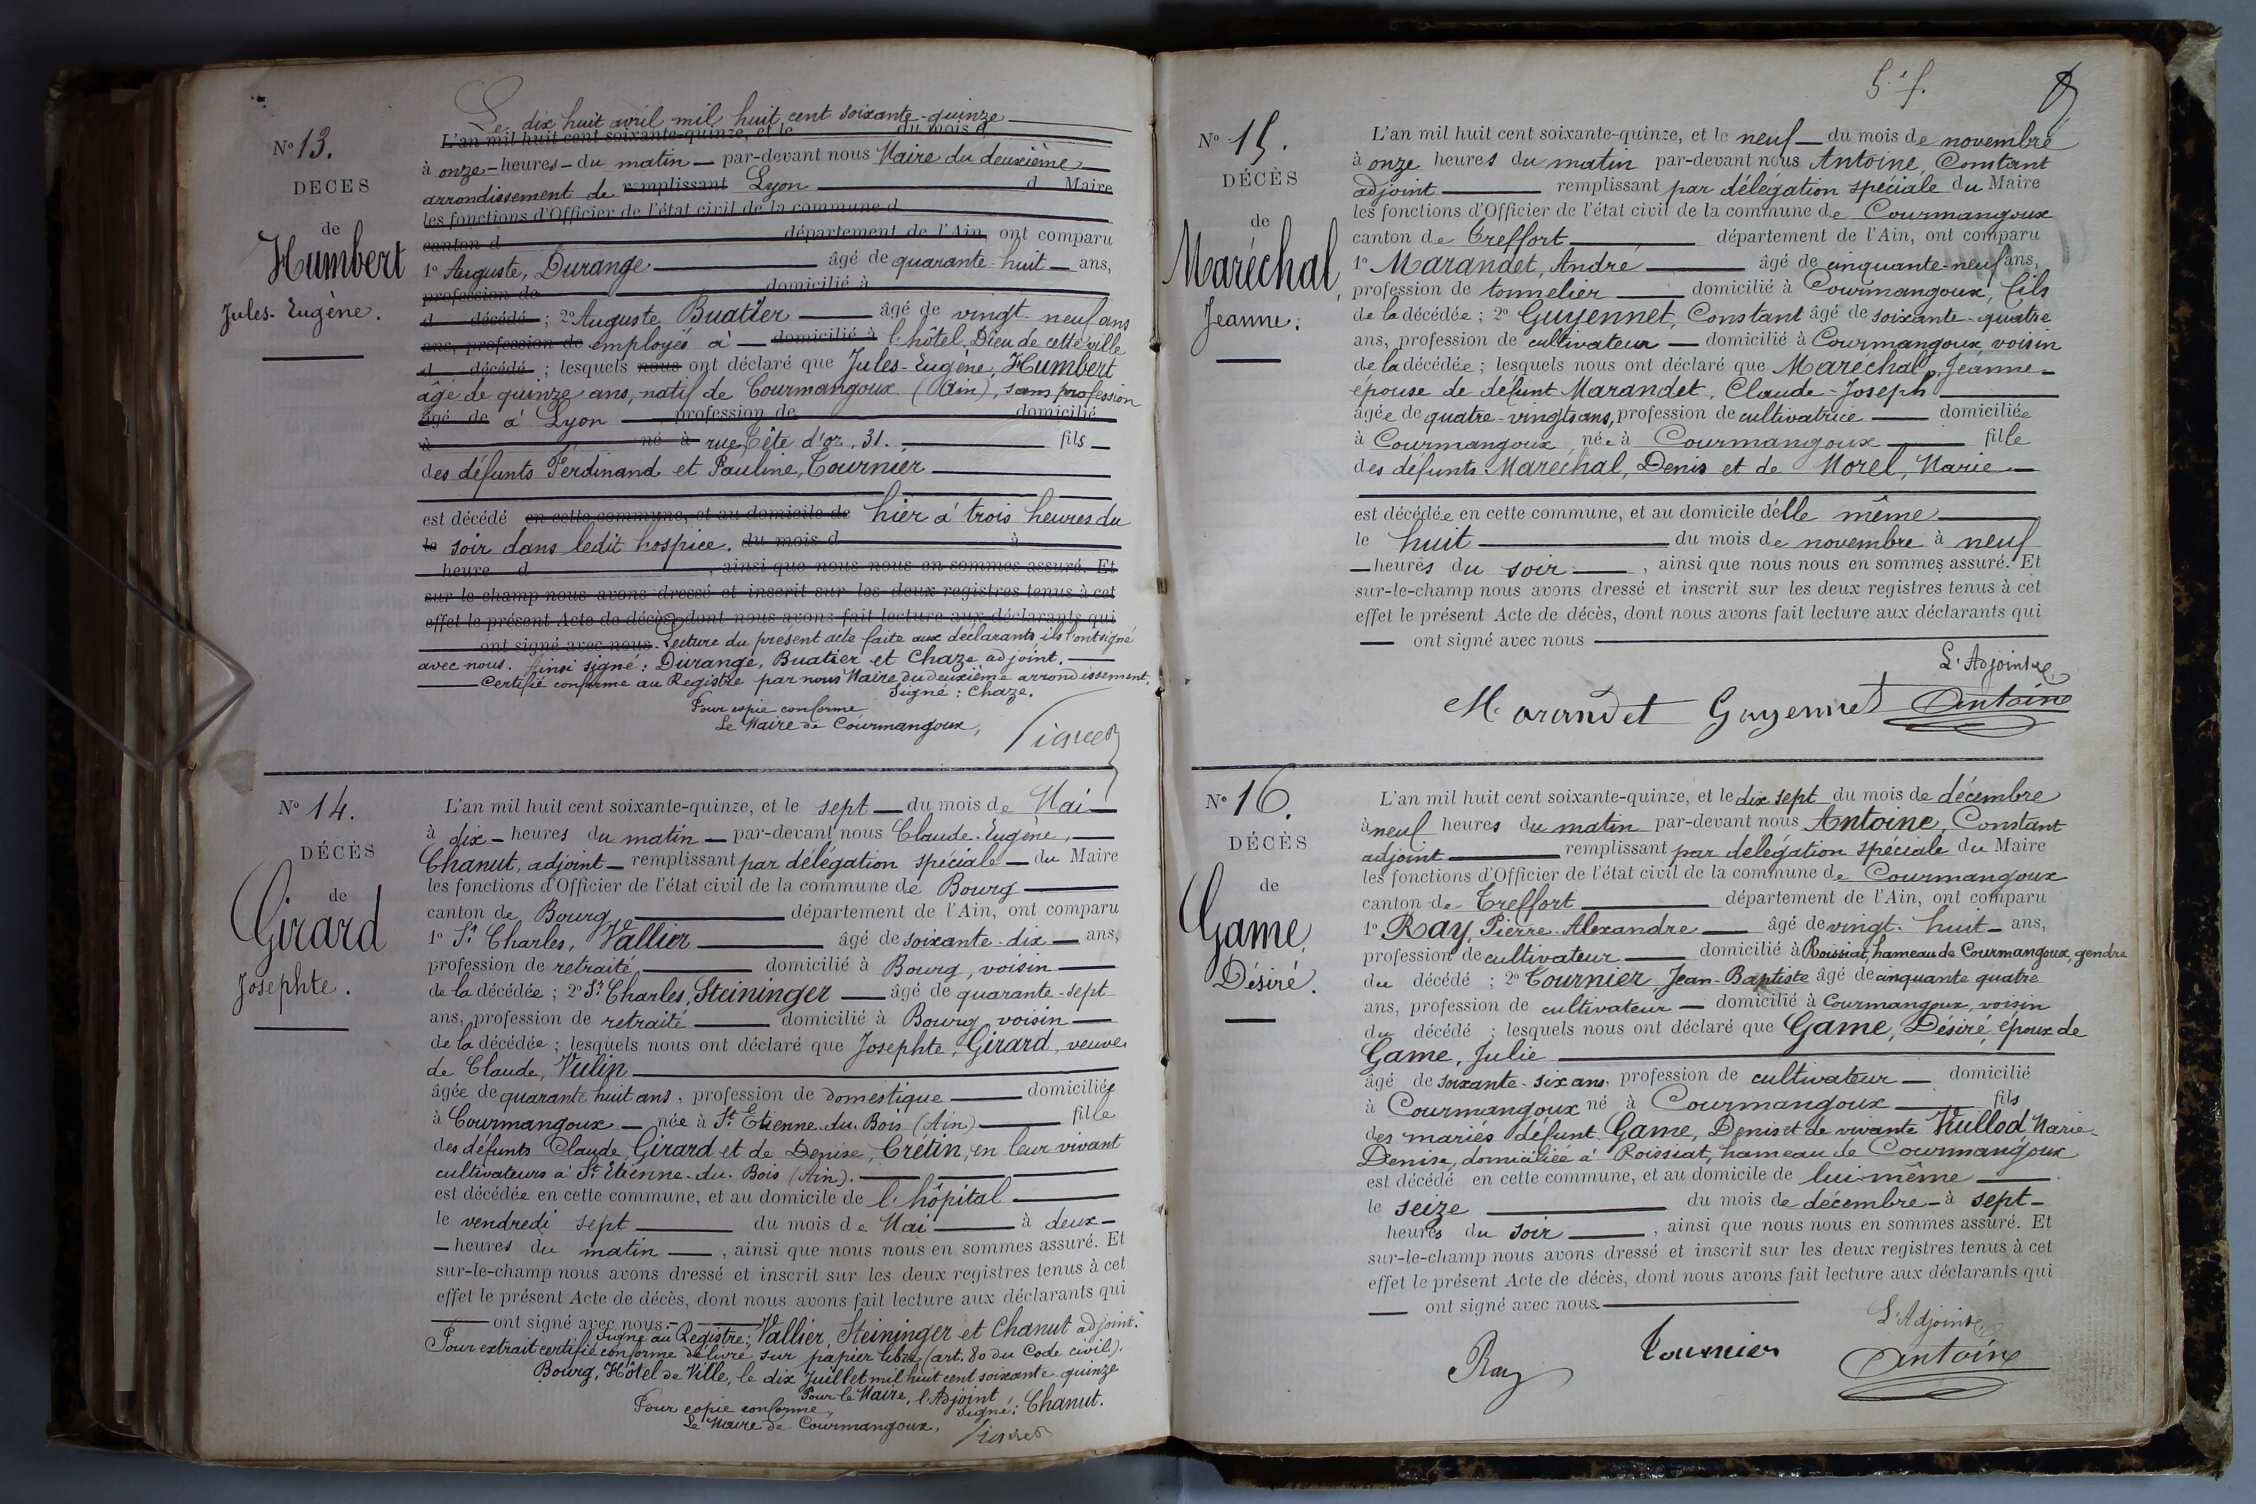 Le dix huit avril mil huit cent soixante-quinze
N° 13.
L'an mil huit cent soixante-quinze, et le du mois d
à onze heures du matin par-devant nous Maire du deuxième
DECES
arrondissement de remplissant Lyon d Maire
les fonctions d'Officier de l'état civil de la commune d
de
canton d département de l'Ain, ont comparu
Humbert
1° Auguste, Durange âgé de quarante-huit ans,
profession de domicilié à
Jules-Eugène.
d décédé ; 2° Auguste Buatier âgé de vingt-neuf ans
ans, profession de employés à domicilié à l'hôtel Dieu de cette ville
d décédé ; lesquels nous ont déclaré que Jules-Eugène, Humbert
âgé de quinze ans, natif de Courmangoux (Ain), sans profession
âgé de à Lyon profession de domicilié
à né à rue Tête d'or, 31. fils
des défunts Ferdinand et Pauline, Tournier
est décédé en cette commune, et au domicile de hier à trois heures du
le soir dans ledit hospice. du mois d à
heure d , ainsi que nous nous en sommes assuré. Et
sur-le-champ nous avons dressé et inscrit sur les deux registres tenus à cet
effet le présent Acte de décès, dont nous avons fait lecture aux déclarants qui
ont signé avec nous. Lecture du présent acte faite aux déclarants ils l'ont signé
avec nous. Ainsi signé : Durange, Buatier et Chaze adjoint.
Certifié conforme au Registre par nous Maire du deuxième arrondissement.
Signé : Chaze.
Pour copie conforme
Le Maire de Courmangoux,
N° 14.
L'an mil huit cent soixante-quinze, et le sept du mois de Mai
à dix heures du matin par-devant nous Claude-Eugène,
DÉCÈS
Chanut, adjoint remplissant par délégation spéciale du Maire
les fonctions d'Officier de l'état civil de la commune de Bourg
de
canton de Bourg département de l'Ain, ont comparu
Girard
1° St Charles, Vallier âgé de soixante-dix ans,
profession de retraité domicilié à Bourg, voisin
Josephte.
de la décédée ; 2° St Charles, Steininger âgé de quarante-sept
ans, profession de retraité domicilié à Bourg voisin
de la décédée ; lesquels nous ont déclaré que Josephte, Girard, veuve
de Claude, Vulin
âgée de quarante huit ans, profession de domestique domiciliée
à Courmangoux née à St Etienne-du-Bois (Ain) fille
des défunts Claude, Girard et de Denise, Crétin, en leur vivant
cultivateurs à St Etienne-du-Bois (Ain).
est décédée en cette commune, et au domicile de l'hôpital
le vendredi sept du mois de Mai à deux
heures du matin , ainsi que nous nous en sommes assuré. Et
sur-le-champ nous avons dressé et inscrit sur les deux registres tenus à cet
effet le présent Acte de décès, dont nous avons fait lecture aux déclarants qui
ont signé avec nous.
Signé au Registre : Vallier, Steininger et Chanut adjoint.
Pour extrait certifié conforme délivré sur papier libre (art. 80 du Code civil).
Bourg, Hôtel de Ville, le dix Juillet mil huit cent soixante-quinze
Pour le Maire, l'Adjoint
signé : Chanut.
Pour copie conforme,
Le Maire de Courmangoux,
N° 15.
L'an mil huit cent soixante-quinze, et le neuf du mois de novembre
à onze heures du matin par-devant nous Antoine, Constant
DÉCÈS
adjoint remplissant par délégation spéciale du Maire
les fonctions d'Officier de l'état civil de la commune de Courmangoux
de
canton de Treffort département de l'Ain, ont comparu
Maréchal,
1° Marandet, André âgé de cinquante-neuf ans,
profession de tonnelier domicilié à Courmangoux, fils
Jeanne.
de la décédée ; 2° Guyennet, Constant âgé de soixante-quatre
ans, profession de cultivateur domicilié à Courmangoux voisin
de la décédée ; lesquels nous ont déclaré que Maréchal, Jeanne
épouse de défunt Marandet, Claude-Joseph
âgée de quatre-vingts ans, profession de cultivatrice domiciliée
à Courmangoux, née à Courmangoux fille
des défunts Maréchal, Denis et de Morel, Marie
est décédée en cette commune, et au domicile d'elle même
le huit du mois de novembre à neuf
heures du soir , ainsi que nous nous en sommes assuré. Et
sur-le-champ nous avons dressé et inscrit sur les deux registres tenus à cet
effet le présent Acte de décès, dont nous avons fait lecture aux déclarants qui
ont signé avec nous
L'Adjoint
Marandet Guyennet Antoine
N° 16.
L'an mil huit cent soixante-quinze, et le dix sept du mois de décembre
à neuf heures du matin par-devant nous Antoine, Constant
DÉCÈS
adjoint remplissant par délégation spéciale du Maire
les fonctions d'Officier de l'état civil de la commune de Courmangoux
de
canton de Treffort département de l'Ain, ont comparu
Game,
1° Ray, Pierre-Alexandre âgé de vingt-huit ans,
profession de cultivateur domicilié à Roissiat, hameau de Courmangoux, gendre
Désiré.
du décédé ; 2° Tournier Jean-Baptiste âgé de cinquante quatre
ans, profession de cultivateur domicilié à Courmangoux, voisin
du décédé ; lesquels nous ont déclaré que Game, Désiré, époux de
Game, Julie
âgé de soixante-six ans, profession de cultivateur domicilié
à Courmangoux né à Courmangoux fils
des mariés défunt Game, Denis et de vivante Vuillod Marie-
Denise, domiciliée à Roissiat, hameau de Courmangoux
est décédé en cette commune, et au domicile de lui-même
le seize du mois de décembre à sept
heures du soir , ainsi que nous nous en sommes assuré. Et
sur-le-champ nous avons dressé et inscrit sur les deux registres tenus à cet
effet le présent Acte de décès, dont nous avons fait lecture aux déclarants qui
ont signé avec nous
L'Adjoint
Ray Tournier Antoine